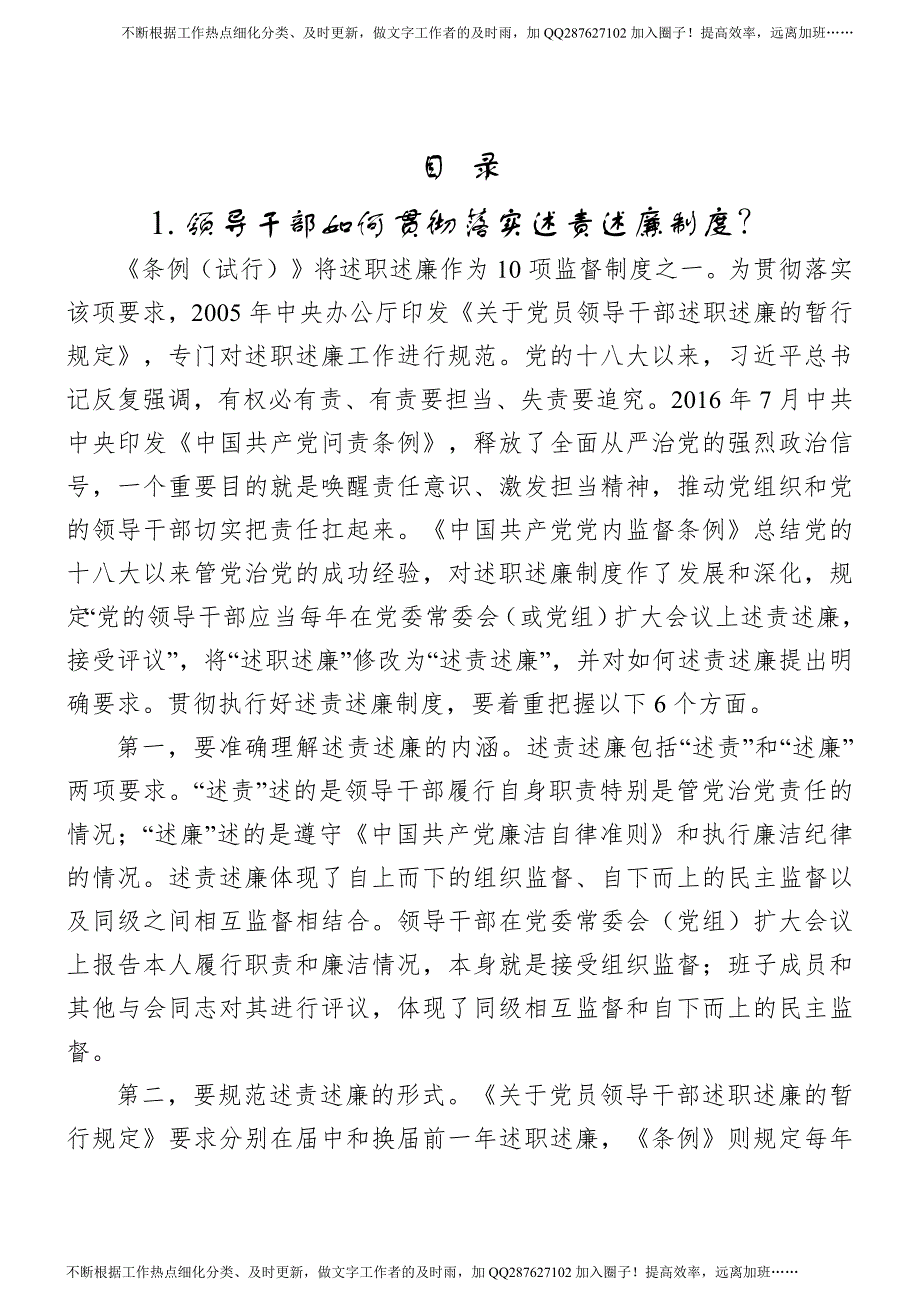 不断根据工作热点细化分类、及时更新，做文字工作者的及时雨，加 QQ287627102 加入圈子！提高效率，远离加班……
目 录
1.领导干部如何贯彻落实述责述廉制度？
《条例（试行）》将述职述廉作为 10 项监督制度之一。为贯彻落实
该项要求，2005 年中央办公厅印发《关于党员领导干部述职述廉的暂行
规定》，专门对述职述廉工作进行规范。党的十八大以来，习近平总书
记反复强调，有权必有责、有责要担当、失责要追究。2016 年 7 月中共
中央印发《中国共产党问责条例》，释放了全面从严治党的强烈政治信
号，一个重要目的就是唤醒责任意识、激发担当精神，推动党组织和党
的领导干部切实把责任扛起来。《中国共产党党内监督条例》总结党的
十八大以来管党治党的成功经验，对述职述廉制度作了发展和深化，规
定“党的领导干部应当每年在党委常委会（或党组）扩大会议上述责述廉，
接受评议”，将“述职述廉”修改为“述责述廉”，并对如何述责述廉提出明
确要求。贯彻执行好述责述廉制度，要着重把握以下 6 个方面。
第一，要准确理解述责述廉的内涵。述责述廉包括“述责”和“述廉”
两项要求。“述责”述的是领导干部履行自身职责特别是管党治党责任的
情况；“述廉”述的是遵守《中国共产党廉洁自律准则》和执行廉洁纪律
的情况。述责述廉体现了自上而下的组织监督、自下而上的民主监督以
及同级之间相互监督相结合。领导干部在党委常委会（党组）扩大会议
上报告本人履行职责和廉洁情况，本身就是接受组织监督；班子成员和
其他与会同志对其进行评议，体现了同级相互监督和自下而上的民主监
督。
第二，要规范述责述廉的形式。《关于党员领导干部述职述廉的暂
行规定》要求分别在届中和换届前一年述职述廉，《条例》则规定每年
不断根据工作热点细化分类、及时更新，做文字工作者的及时雨，加 QQ287627102 加入圈子！提高效率，远离加班……